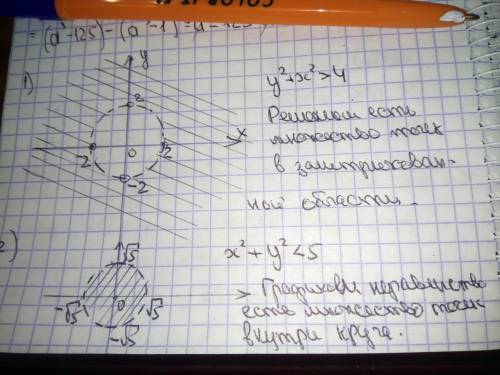 = (a³-125) - (a³-1) = a³-125
1)
y
y²+x²>4
2
x
-2
0
2
-2
Решений есть
множество точек
в заштрихован-
ной области.
2)
√5
x²+y²<5
-√5
0
√5
-√5
Графиком неравенства
есть множество точек
внутри круга.